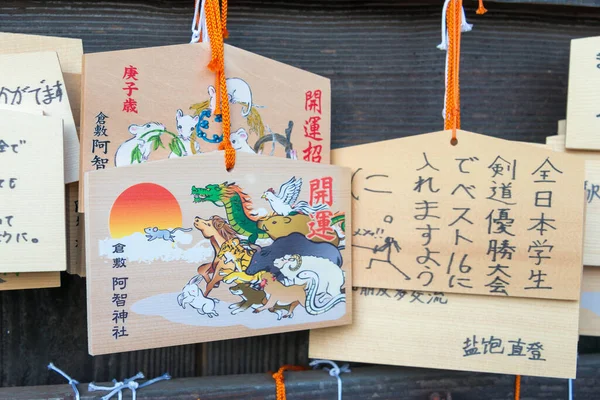 庚子歳
倉敷 阿智
開運招
開運
倉敷 阿智神社
全日本学生
剣道優勝大会
でベスト16に
入れますよう
に。
朋友多交流
塩飽 直登
がでます
全て
も
って
うに。